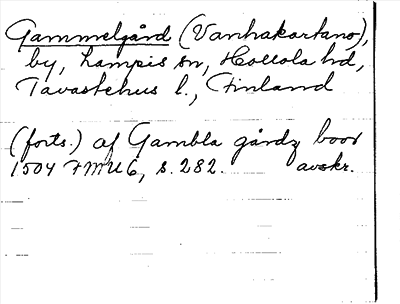 Gammelgård (Vanhakartano),
by, Lampis sn, Hollola hd,
Tavastehus l., Finland
(forts.) af Gambla gårdz boor
1504 FMU 6, s. 282. avskr.